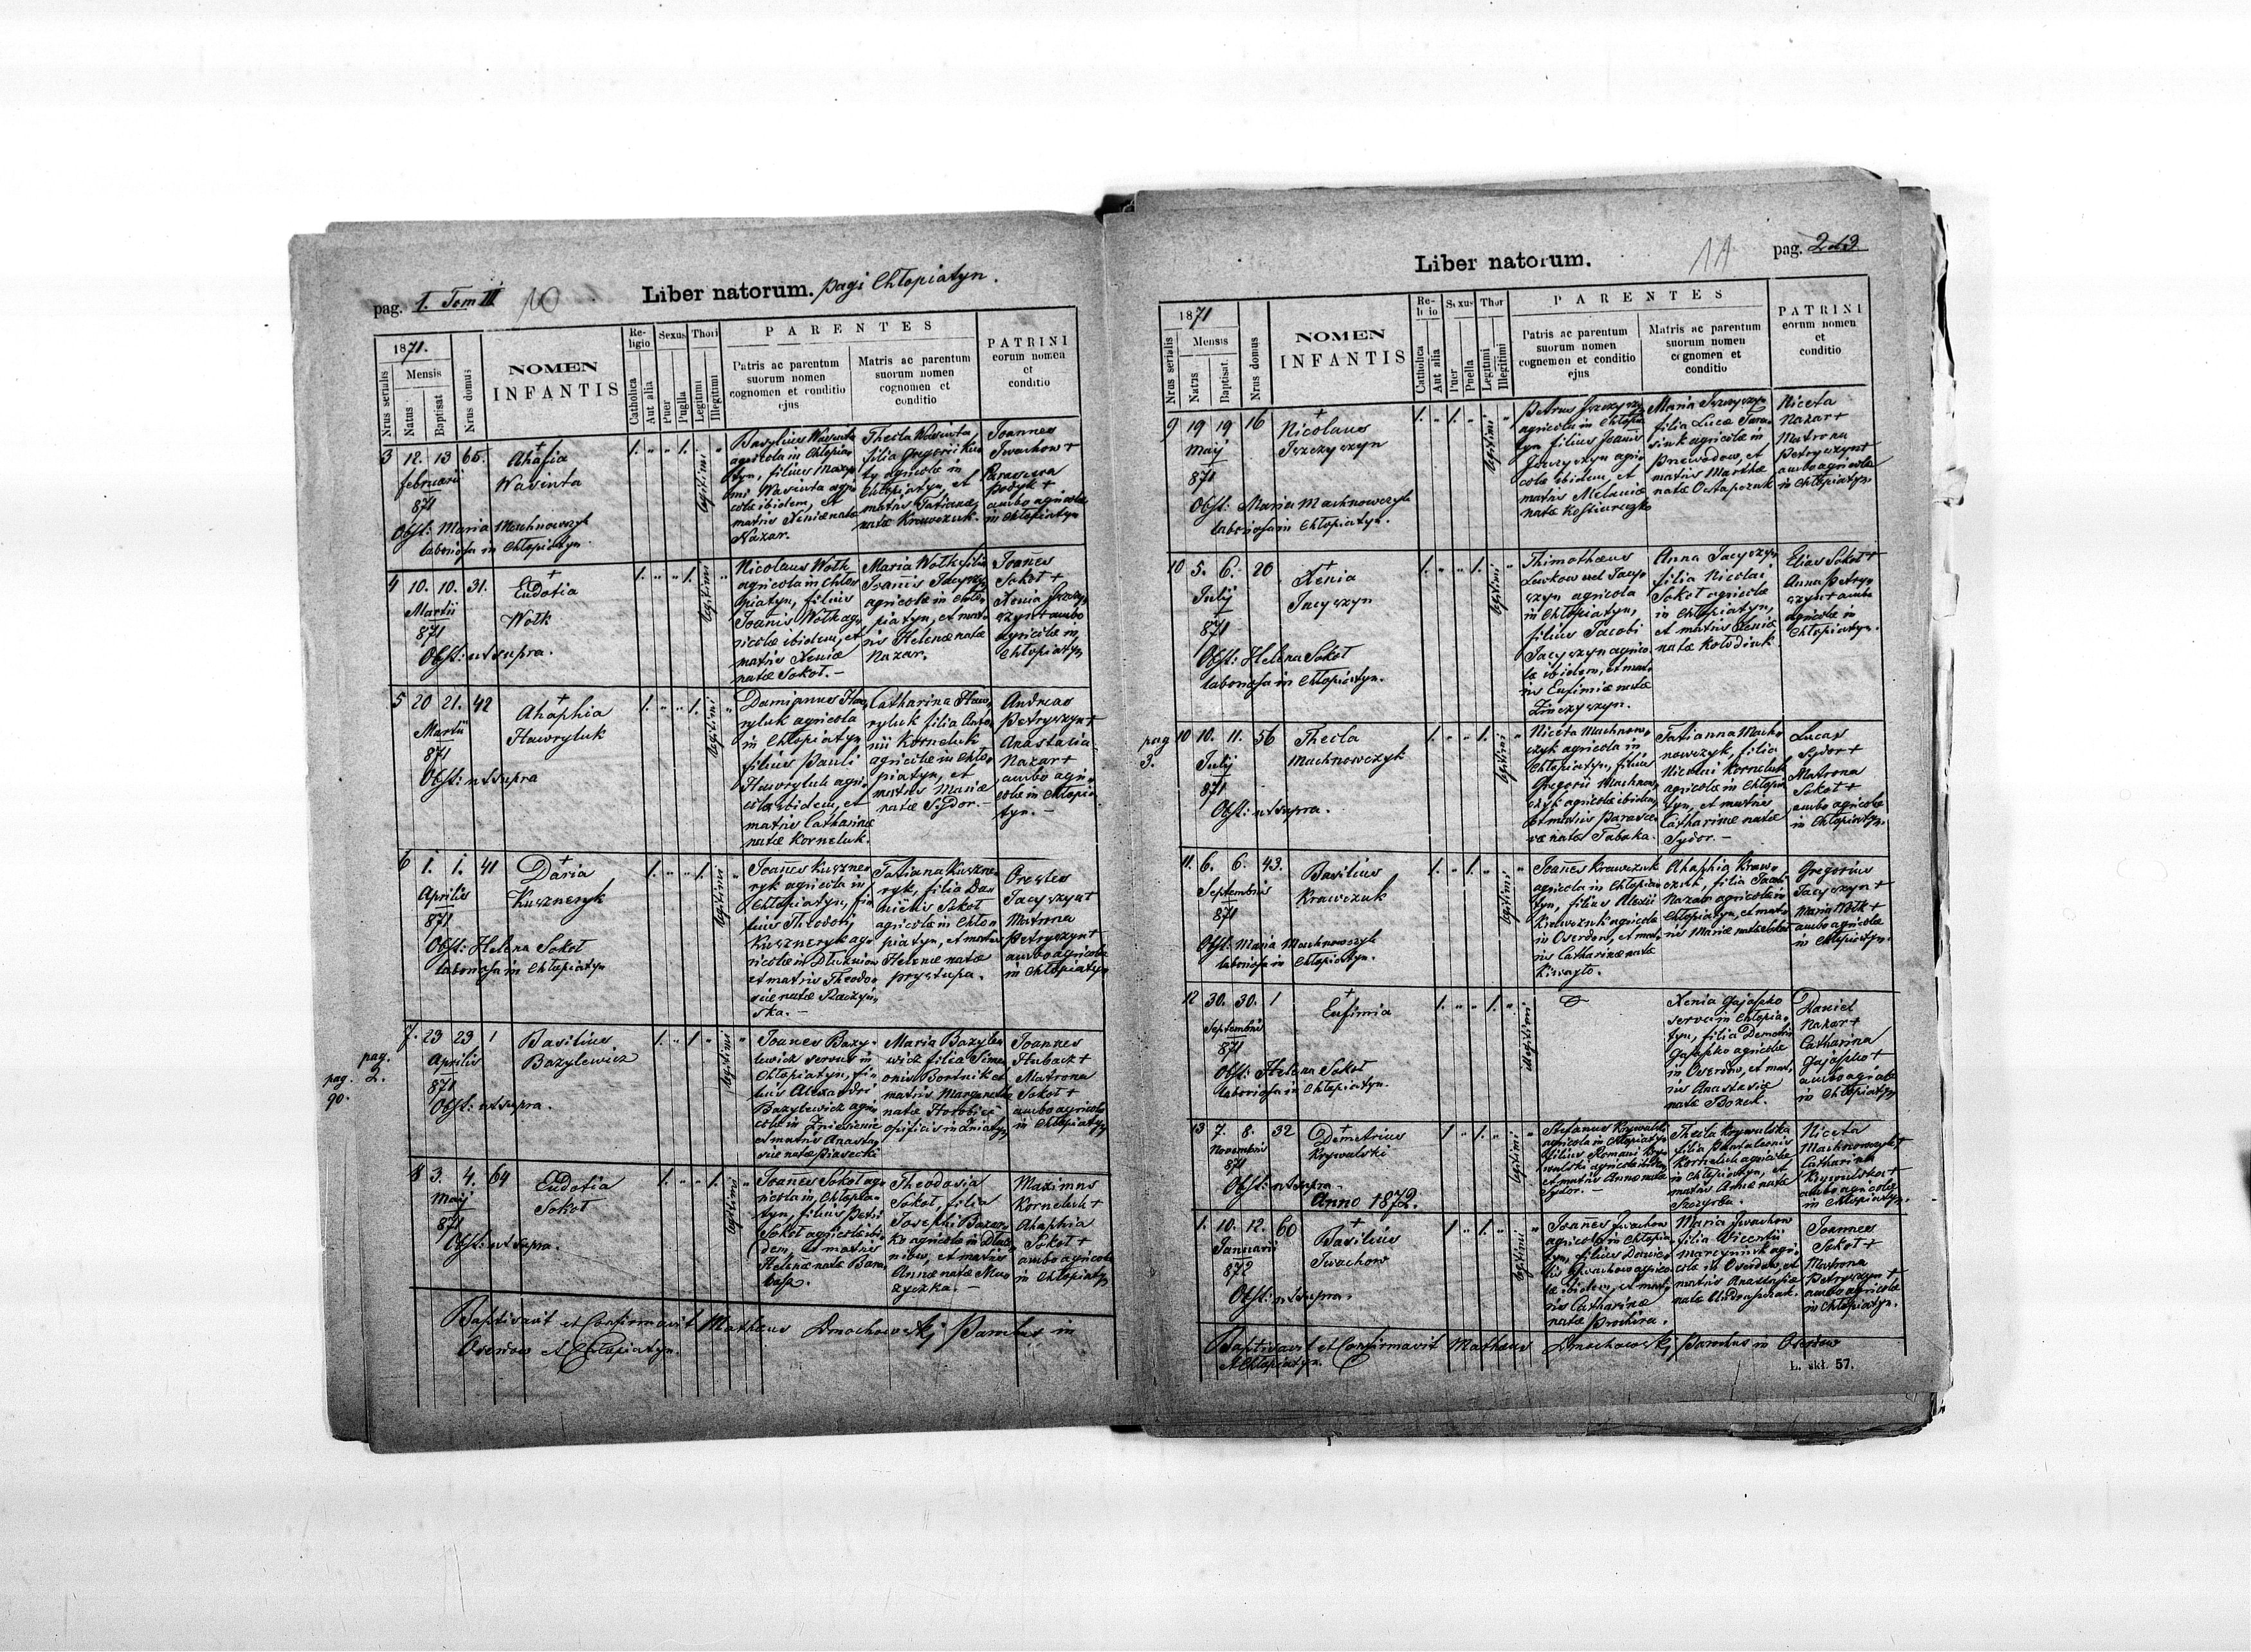 pag. 1. Tom III
10
Liber natorum. pagi Chłopiatyn.
1871.
Mensis
Nrus serialis
Natus
Baptisat
Nrus domus
NOMEN
INFANTIS
Re-
ligio
Catholica
Aut alia
Sexus
Puer
Puella
Thori
Legitimi
Illegitimi
PARENTES
Patris ac parentum
suorum nomen
cognomen et conditio
ejus
Matris ac parentum
suorum nomen
cognomen et
conditio
PATRINI
eorum nomen
et
conditio
3 12. 13 65. Ahafia
februarii Wasinta
871
Obst: Maria Machnowczyk
laboriosa in Chłopiatyn.
1. " " 1. legitimi "
Basylius Wasinta
agricola in Chłopia
tyn, filius Maxy
mi Wasinta agri
colæ ibidem, et
matris Xeniæ natæ
Nazar.
Thecla Wasinta
filia Gregorii
agricolæ in
Chłopiatyn, et
matris Tatianæ
natæ Krawczuk.
Joannes
Iwachow +
Parasceva
+
ambo agricolæ
in Chłopiatyn
4 10. 10. 31. Eudotia
Martii Wołk
871
Obst: ut supra.
1. " " 1. legitimi "
Nicolaus Wołk
agricola in Chło
piatyn, filius
Joanis Wołk ag
ricolæ ibidem, et
matris Xeniæ
natæ Sokoł. –
Maria Wołk filia
Joannis Jacyszyn
agricolæ in Chło
piatyn, et mat
ris Helenæ natæ
Nazar.
Joanes
Sokoł +
Xenia
szyn + ambo
agricolæ in
Chłopiatyn
5 20 21. 42 Ahaphia
Martii Hawryluk
871
Obst: ut supra
1. " " 1. legitimi "
Damianus Haw
ryluk agricola
in Chłopiatyn
filius Pauli
Hawryluk agri
colæ ibidem, et
matris Catharinæ
natæ Korneluk.
Catharina Haw
ryluk filia Anto
nii Korneluk
agricolæ in Chło
piatyn, et
matris Mariæ
natæ Sydor. –
Andreas
Petryszyn +
Anastasia
Nazar +
ambo agri
colæ in Chłopia
tyn. –
6 1. 1. 41 Daria
Aprilis Kuszneryk
871
Obst: Helena Sokoł
laboriosa in Chłopiatyn
1. " " 1. legitimi "
Joanes Kuszne
ryk agricola in
Chłopiatyn, fi
lius Theodori
Kuszneryk ag
ricolæ in Dłużniow
et matris Theodo
siæ natæ Raczyń
ska. –
Tatiana Kuszne
ryk, filia Da
nielis Sokoł
agricolæ in Chło
piatyn, et matris
Helenæ natæ
Przystupa.
Orestes
Jacyszyn +
Matrona
Petryszyn +
ambo agricolæ
in Chłopiatyn
pag.
2.
pag.
90.
7. 23 23 1 Basilius
Aprilis Bazylewicz
871
Obst: ut supra.
1. " 1. " legitimi "
Joanes Bazy-
lewicz servus in
Chłopiatyn, fi-
lius Alexandri
Bazylewicz agri
colæ in Zniesienie
et matris Anasta
siæ natæ Piasecki
Maria Bazyle
wicz filia Sime
onis Bortnik et
matris Margarethæ
natæ Horobiec
opificis in Żniatyn
Joannes
Hubacz +
Matrona
Sokoł +
ambo agricolæ
in Chłopiatyn
8 3. 4. 64 Eudotia
Maij Sokoł
871
Obst: ut supra.
1. " " 1. legitimi "
Joanes Sokoł ag
ricola in Chłopia-
tyn, filius Petri
Sokoł agricolæ ibi
dem, et matris
Helenæ natæ Bara
basz.
Theodosia
Sokoł, filia
Josephi
ko agricolæ in Dłuż
niow, et matris
Annæ natæ
Maximus
Korneluk +
Ahaphia
Sokoł +
ambo agricolæ
in Chłopiatyn
Baptisavit et Confirmavit Matheus Dmochowski Parochus in
Oserdow et Chłopiatyn.
Liber natorum.
11
pag. 2 et 3
1871
Mensis
Nrus serialis
Natus
Baptisat.
Nrus domus
NOMEN
INFANTIS
Re-
ligio
Catholica
Aut alia
Sexus
Puer
Puella
Thori
Legitimi
Illegitimi
PARENTES
Patris ac parentum
suorum nomen
cognomen et conditio
ejus
Matris ac parentum
suorum nomen
cognomen et
conditio
PATRINI
eorum nomen
et
conditio
9 19 19 16 Nicolaus
Maij
871
Obst: Maria Machnowczyk
laboriosa in Chłopiatyn.
1. " 1. " legitimi "
Petrus
agricola in Chłopia
tyn filius Joanis
agri
colæ ibidem, et
matris Melaniæ
natæ
Maria
filia Lucæ Tara
siuk agricolæ in
Przewodow, et
matris Marthæ
natæ Ostapczuk
Niceta
Nazar +
Matrona
Petryszyn +
ambo agricolæ
in Chłopiatyn.
10 5. 6. 20 Xenia
Julij Jacyszyn
871
Obst: Helena Sokoł
laboriosa in Chłopiatyn.
1. " " 1. legitimi "
Thimotheus
Lewkow vel Jacy
szyn agricola
in Chłopiatyn,
filius Jacobi
Jacyszyn agrico
læ ibidem, et mat
ris Eufimiæ natæ
Anna Jacyszyn
filia Nicolai
Sokoł agricolæ
in Chłopiatyn,
et matris Xeniæ
natæ Kołodiuk
Elias Sokoł +
Anna Petry
szyn + ambo
agricolæ in
Chłopiatyn.
pag
3.
10 10. 11. 56 Thecla
Julij Machnowczyk
871
Obst: ut supra.
1. " " 1. legitimi "
Niceta Machnow
czyk agricola in
Chłopiatyn, filius
Gregorii Machnow
czyk agricolæ ibidem,
et matris Parasce
væ natæ Tabaka.
Tatianna Mach
nowczyk, filia
Nicolai Korneluk
agricolæ in Chłopia
tyn, et matris
Catharinæ natæ
Sydor. –
Lucas
Sydor +
Matrona
Sokoł +
ambo agricolæ
in Chłopiatyn.
11. 6. 6. 43. Basilius
Septembris Krawczuk
871
Obst: Maria Machnowczyk
laboriosa in Chłopiatyn.
1. " 1. " legitimi "
Joannes Krawczuk
agricola in Chłopia
tyn, filius Alexii
Krawczuk agricolæ
in Oserdow, et mat
ris Catharinæ natæ
Ahaphia Kraw
czuk, filia Jacobi
Nazar agricolæ in
Chłopiatyn, et mat
ris Mariæ natæ
Gregorius
Jacyszyn +
Maria Wołk +
ambo agricolæ
in Chłopiatyn.
12 30. 30. 1 Eufimia
Septembris
871
Obst: Helena Sokoł
laboriosa in Chłopiatyn.
1. " " 1. " illegitimi
Xenia Gajosko
serva in Chłopia
tyn, filia Demetrii
Gajosko agricolæ
in Oserdow, et mat
ris Anastasiæ
natæ
Daniel
Nazar +
Catharina
Gajosko +
ambo agricolæ
in Chłopiatyn
13 7. 8. 32 Demetrius
Novembris Krywulski
871
Obst: ut supra.
1 " 1. " legitimi "
Stefanus Krywulski
agricola in Chłopiatyn
filius Romani Kry
wulski agricolæ ibidem,
et matris Annæ natæ
Sydor. –
Thecla Krywulska
filia Pantaleonis
Korneluk agricolæ
in Chłopiatyn, et
matris Annæ natæ
Niceta
Machnowczyk +
Catharina
Krywulska +
ambo agricolæ
in Chłopiatyn.
Anno 1872.
1. 10. 12. 60 Basilius
Januarii Iwachow
872
Obst: ut supra.
1 " 1. " legitimi "
Joannes Iwachow
agricola in Chłopia
tyn, filius Danie
lis Iwachow agrico
læ ibidem, et mat
ris Catharinæ
natæ Prochira.
Maria Iwachow
filia Vicentii
agri
colæ in Oserdow, et
matris Anastasiæ
natæ
Joannes
Sokoł +
Matrona
Petryszyn +
ambo agricolæ
in Chłopiatyn.
Baptisavit et Confirmavit Matheus Dmochowski Parochus in Oserdow
et Chłopiatyn.
L. skł. 57.